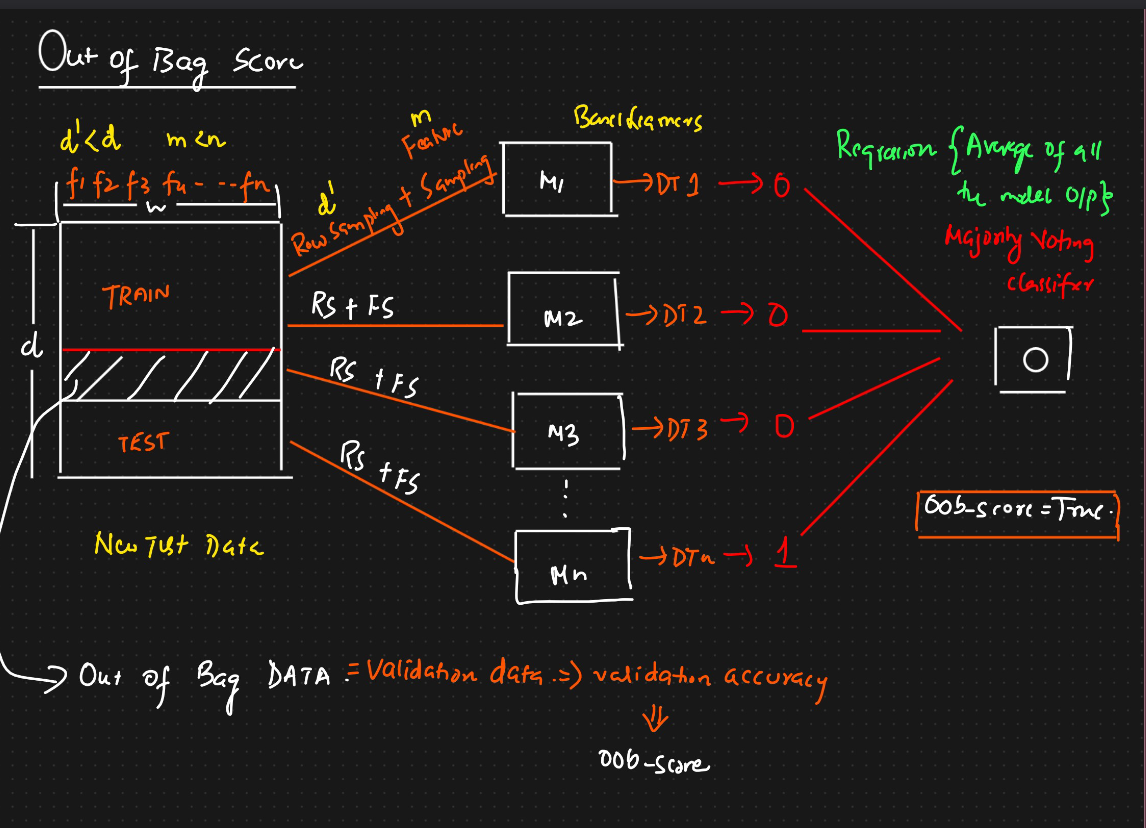 Out of Bag Score
d'<d m<n
f1 f2 f3 f4 - - - fn
TRAIN
d
TEST
New Test Data
m
Feature
d'
Row Sampling + Sampling
RS + FS
RS + FS
RS + FS
Base learners
M1 → DT1 → 0
M2 → DT2 → 0
M3 → DT3 → 0
Mn → DTn → 1
Regression {Average of all
the model O/P}
Majority Voting
classifier
0
oob-score = True.
Out of Bag DATA = Validation data => validation accuracy
oob-score